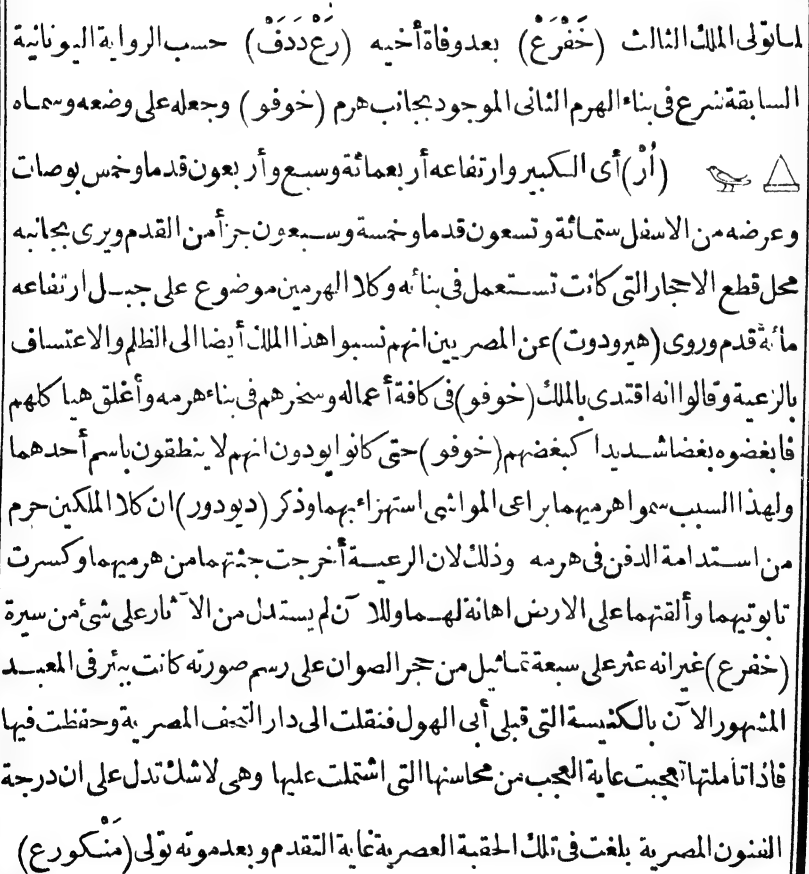 لما تولى الملك الثالث (خَفْرَعْ) بعد وفاة أخيه (رَعْ دَدَفْ) حسب الرواية اليونانية
السابقة شرع فى بناء الهرم الثانى الموجود بجانب هرم (خوفو) وجعله على وضعه وسماه
(أُرْ) أى الكبير وارتفاعه أربعمائة وسبع وأربعون قدما وخمس بوصات
وعرضه من الاسفل ستمائة وتسعون قدما وخمسة وسبعون جزأ من القدم ويرى بجانبه
محل قطع الاحجار التى كانت تستعمل فى بنائه وكلا الهرمين موضوع على جبل ارتفاعه
مائة قدم وروى (هيرودوت) عن المصريين انهم نسبوا هذا الملك أيضا الى الظلم والاعتساف
بالرعية وقالوا انه اقتدى بالملك (خوفو) فى كافة أعماله وسخرهم فى بناء هرمه وأغلق هياكلهم
فابغضوه بغضا شديدا كبغضهم (خوفو) حتى كانوا يودون انهم لا ينطقون باسم أحدهما
ولهذا السبب سموا هرميهما براعى المواشى استهزاء بهما وذكر (ديودور) ان كلا الملكين حرم
من استدامة الدفن فى هرمه وذلك لان الرعية أخرجت جثتهما من هرميهما وكسرت
تابوتيهما وألقتهما على الارض اهانة لهما وللآن لم يستدل من الآثار على شئ من سيرة
(خفرع) غير انه عثر على سبعة تماثيل من حجر الصوان على رسم صورته كانت ببئر فى المعبد
المشهور الآن بالكنيسة التى قبلى أبى الهول فنقلت الى دار التحف المصرية وحفظت فيها
فاذا تأملتها تعجبت غاية العجب من محاسنها التى اشتملت عليها وهى لاشك تدل على ان درجة
الفنون المصرية بلغت فى تلك الحقبة العصرية غاية التقدم وبعد موته تولى (مَنْكورع)